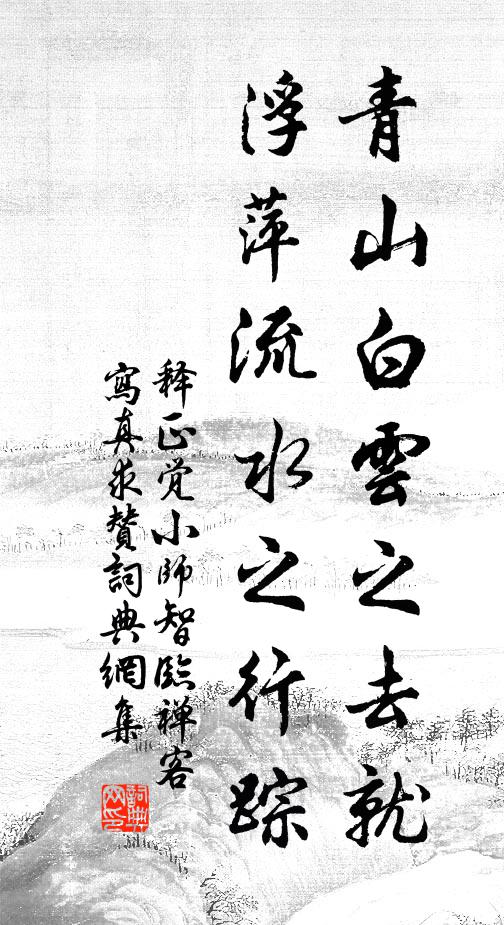 青山白雲之去就
浮萍流水之行踪
释正觉小師智臨禅客
寫真求賛詞典網集